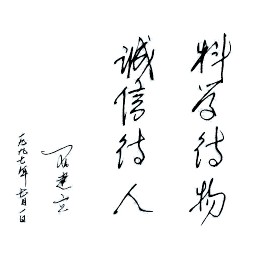 科学待物
诚信待人
一九九七年七月一日